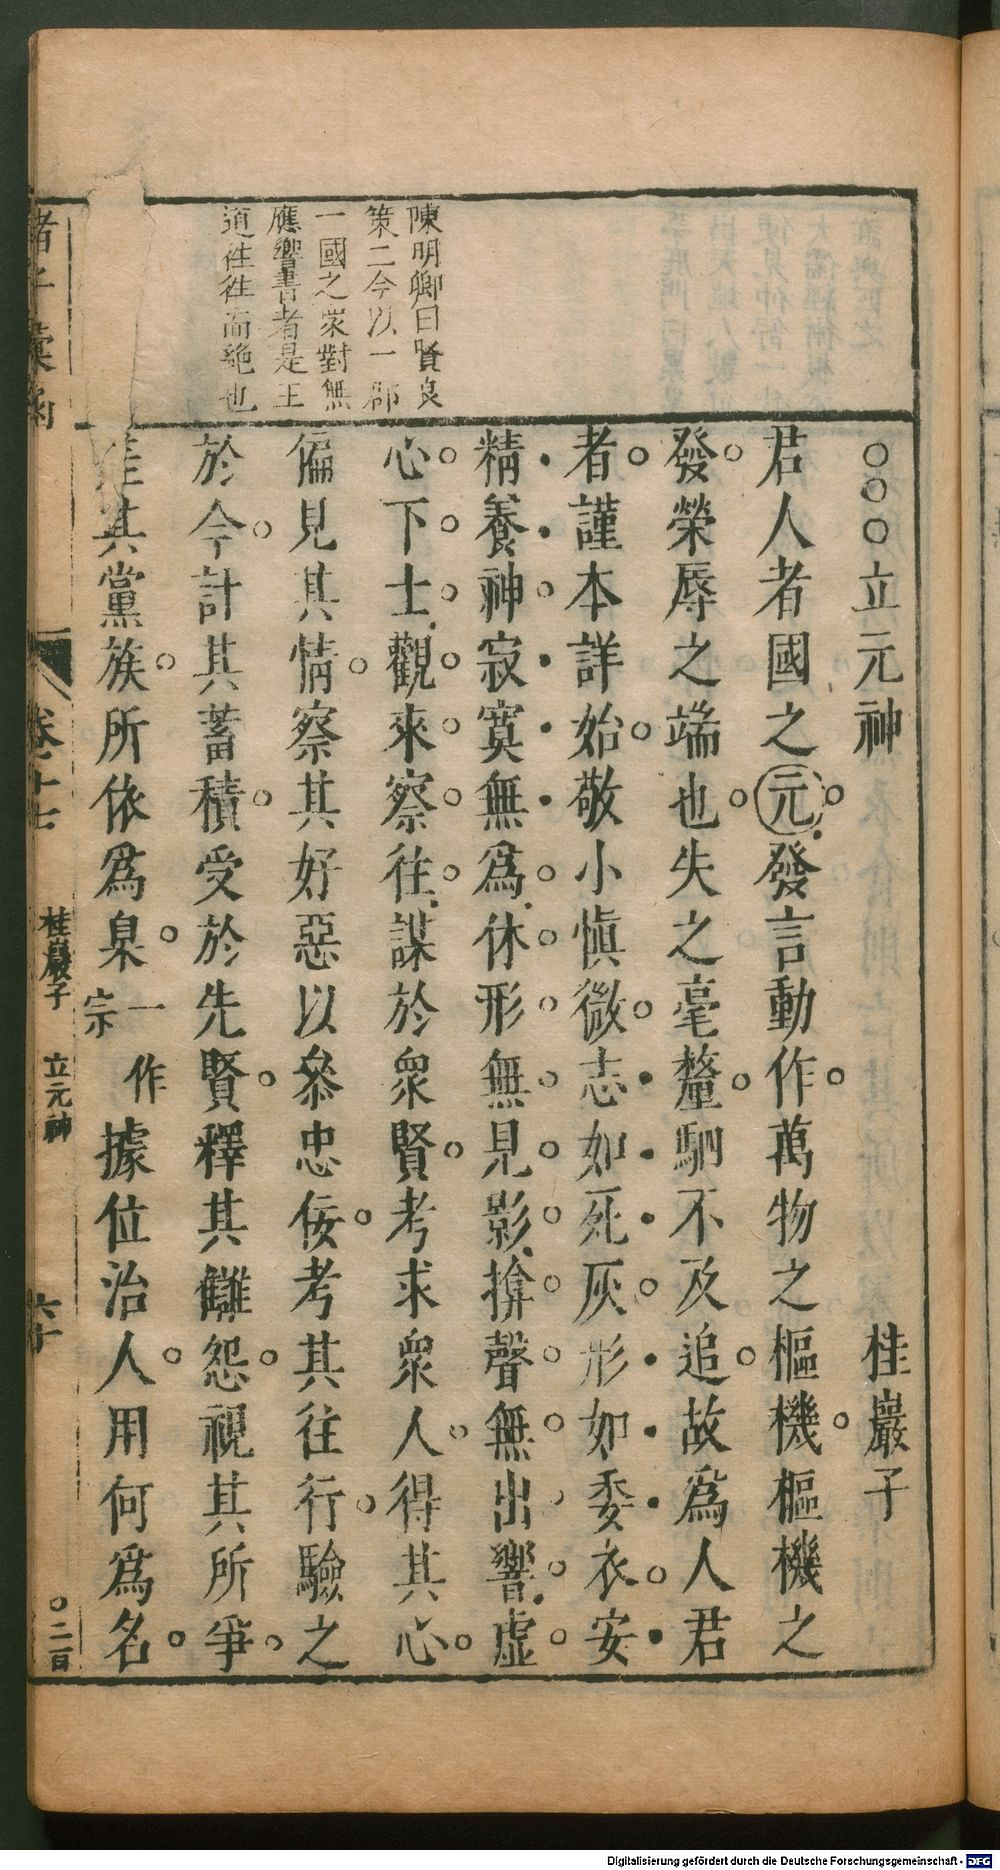 陳明卿曰賢良
策二今以一郡
一國之衆對無
應響書者是王
道徃徃而絶也
○○○立元神 桂巖子
君人者國之元發言動作萬物之樞機樞機之
發榮辱之端也失之毫釐駟不及追故爲人君
者謹本詳始敬小愼微志如死灰形如委衣安
精養神寂寞無爲休形無見影揜聲無出響虛
心下士觀來察往謀於衆賢考求衆人得其心
偏見其情察其好惡以叅忠佞考其往行驗之
於今計其蓄積受於先賢釋其讎怨視其所爭
其黨族所依爲臬一作宗據位治人用何爲名
諸子彙函 卷十七 桂巖子 立元神 六十 ○二百
Digitalisierung gefördert durch die Deutsche Forschungsgemeinschaft - DFG